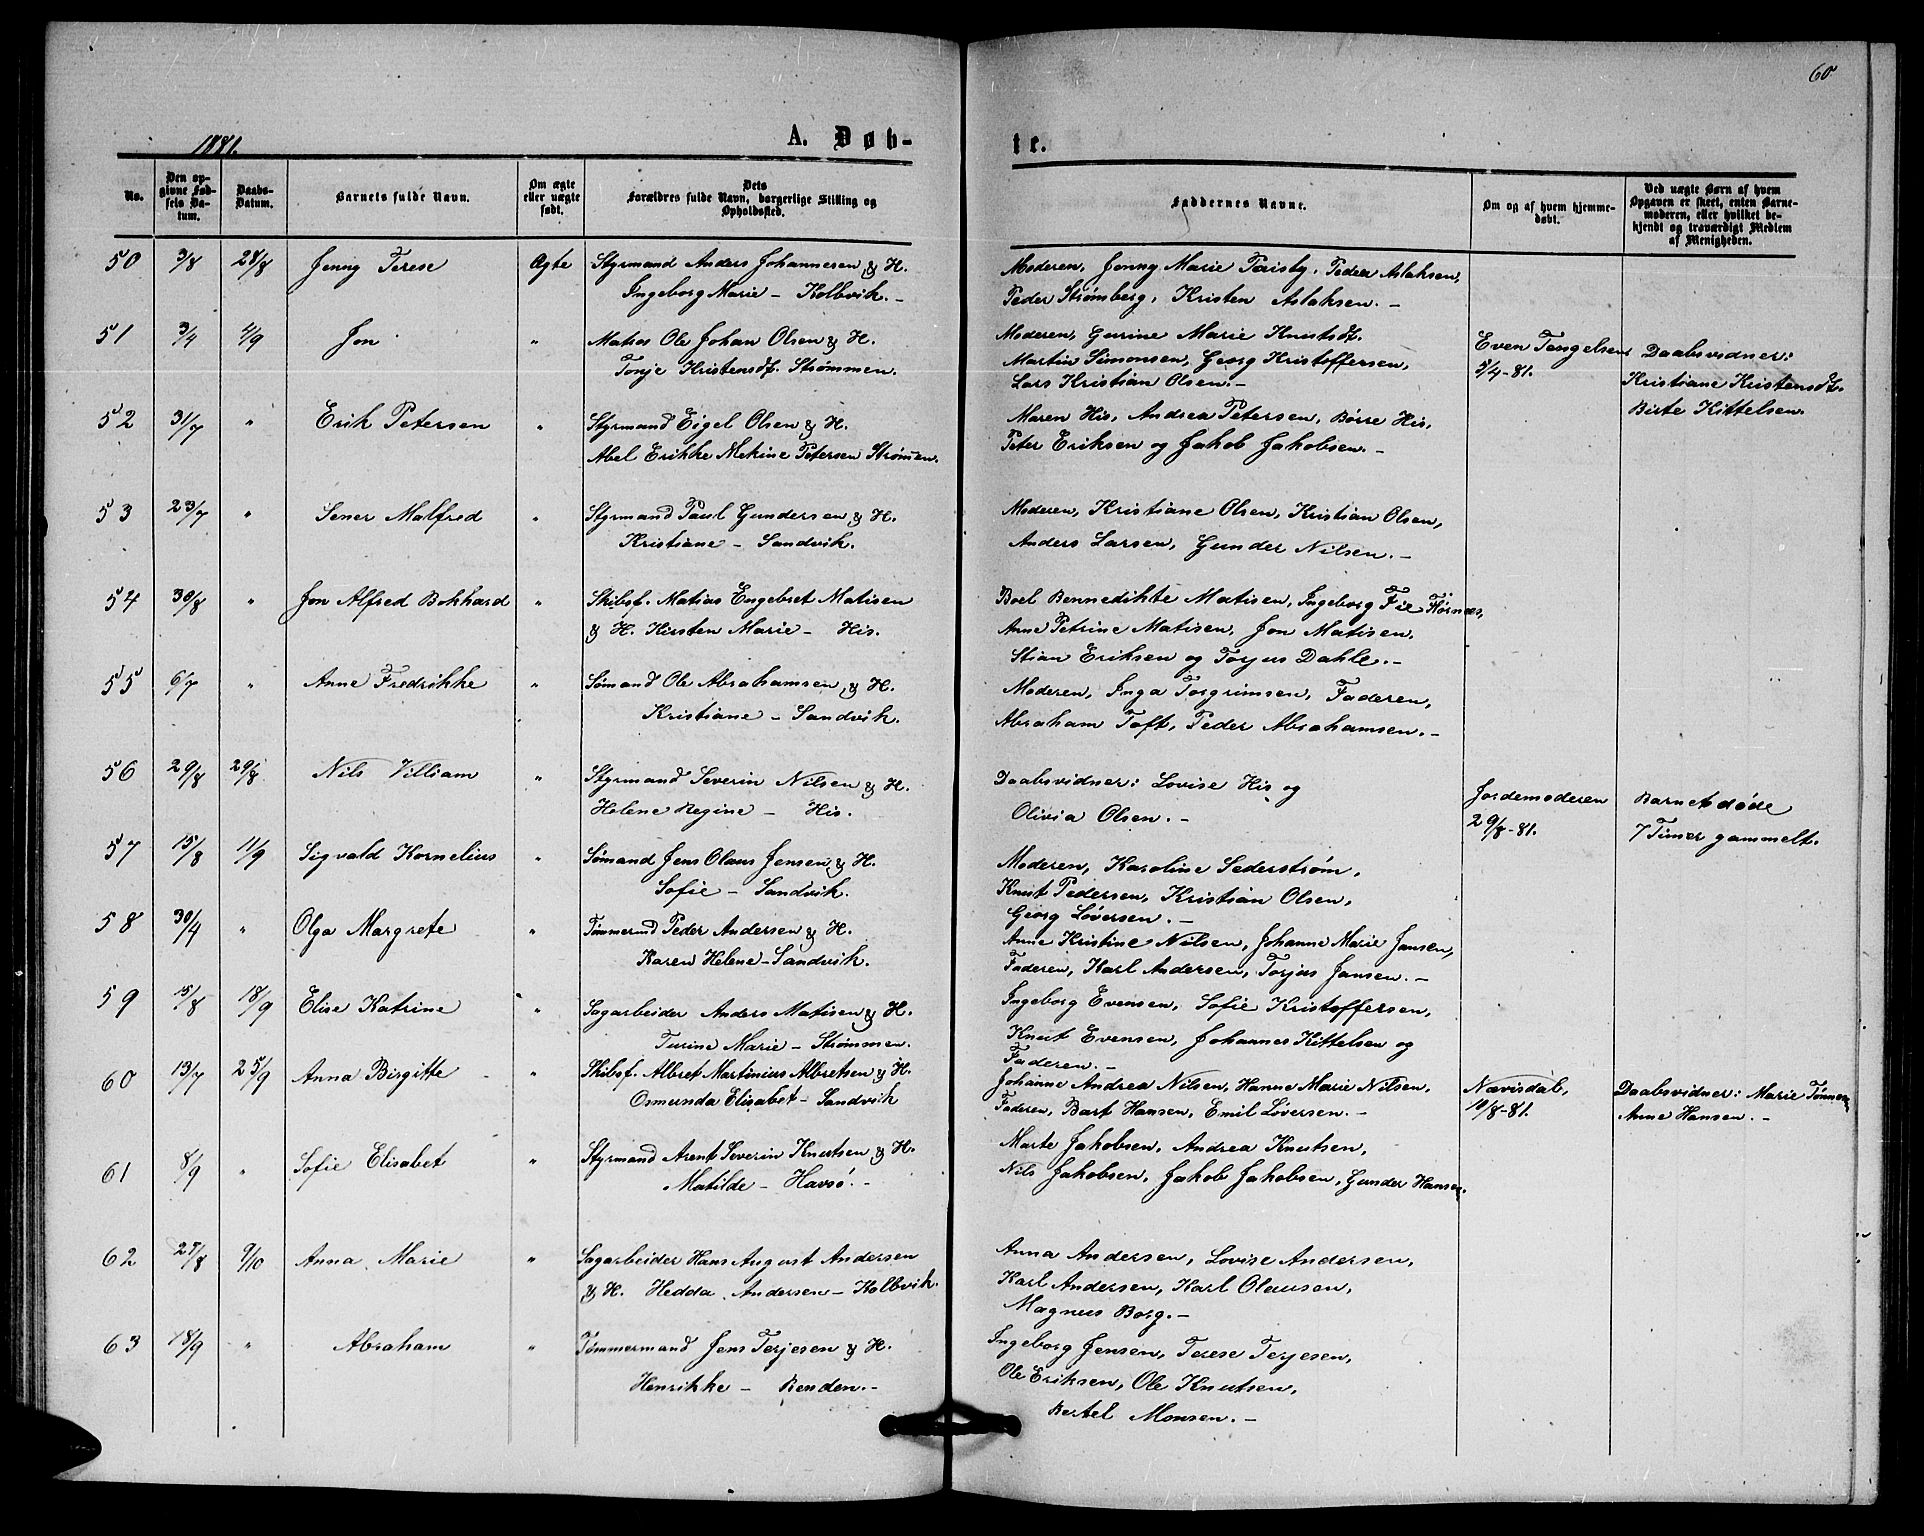 60
1881.
A. Døb-
te.
No.
Den op-
givne Fød-
sels Da-
tum.
Daabs-
Datum.
Barnets fulde Navn.
Om ægte
eller uægte
født.
Dets
Forældres fulde Navn, borgerlige Stilling og
Opholdssted.
Faddernes Navne.
Om og af hvem hjemme-
døbt.
Ved uægte Børn af hvem
Opgaven er skeet, enten Barne-
moderen, eller hvilket be-
kjendt og troværdigt Medlem
af Menigheden.
50 3/8 28/8 Jenny Terese Ægte Styrmand Anders Johannesen & H.
Ingeborg Marie - Kolbvik. -
Moderen, Jenny Marie Taisty, Peder Aslaksen,
Peder Strømberg, Kristen Aslaksen. -
51 3/4 4/9 Jon " Matros Ole Johan Olsen & H.
Tonje Kristensdt. Strømmen.
Moderen, Gurine Marie Knutsdt.
Martin Simonsen, Georg Kristoffersen,
Lars Kristian Olsen. -
Even Tengelsen
5/4-81.
Daabsvidner:
Kristiane Kristensdt.
Birte Kittelsen.
52 31/7 " Erik Petersen " Styrmand Eigel Olsen & H.
Abel Erikke Mekine Petersen Strømen.
Maren His, Andrea Petersen, Børre His,
Peter Eriksen og Jakob Jakobsen. -
53 23/7 " Sener Malfred " Styrmand Paul Gundersen & H.
Kristiane - Sandvik.
Moderen, Kristiane Olsen, Kristian Olsen,
Anders Larsen, Gunder Nilsen. -
54 30/8 " Jon Alfred Bokhard " Skibsf. Matias Engebret Matisen
& H. Kirsten Marie - His.
Boel Bennedikte Matisen, Ingeborg Fie Hørnes,
Anne Petrine Matisen, Jon Matisen,
Stian Eriksen og Torjus Dahle. -
55 6/7 " Anne Fredrikke " Sømand Ole Abrahamsen & H.
Kristiane - Sandvik.
Moderen, Inga Torgrimsen, Faderen,
Abraham Toft, Peder Abrahamsen. -
56 29/8 29/8 Nils Villiam " Styrmand Severin Nilsen & H.
Helene Regine - His.
Daabsvidner: Lovise His og
Olivia Olsen. -
Jordemoderen
29/8-81.
Barnet døde
7 Timer gammelt.
57 15/8 11/9 Sigvald Kornelius " Sømand Jens Olaus Jensen & H.
Sofie - Sandvik.
Moderen, Karoline Sederstrøm,
Knut Pedersen, Kristian Olsen,
Georg Løversen. -
58 30/4 " Olga Margrete " Tømmermd Peder Andersen & H.
Karen Helene - Sandvik.
Anne Kristine Nilsen, Johanne Marie Jansen,
Faderen, Karl Andersen, Torjus Jansen. -
59 15/8 18/9 Elise Katrine " Sagarbeider Anders Matisen & H.
Turine Marie - Strømmen.
Ingeborg Evensen, Sofie Kristoffersen,
Knut Evensen, Johannes Kittelsen og
Faderen. -
60 13/7 25/9 Anna Birgitte " Skibsf. Albret Martinius Albretsen & H.
Osmunda Elisabet - Sandvik
Johanne Andrea Nilsen, Hanne Marie Nilsen,
Faderen, Bart Hansen, Emil Løversen. -
Nævisdal,
10/8-81.
Daabsvidner: Marie Tønnes
Anne Hansen. -
61 8/9 " Sofie Elisabet " Styrmand Arent Severin Knutsen & H.
Matilde - Havsø. -
Marte Jakobsen, Andrea Knutsen,
Nils Jakobsen, Jakob Jakobsen, Gunder Hansen.
62 27/8 9/10 Anna Marie " Sagarbeider Hans August Andersen
& H. Hedda Andersen - Kolbvik.
Anna Andersen, Lovise Andersen,
Karl Andersen, Karl Olausen,
Magnus Borg. -
63 18/9 " Abraham " Tømmermand Jens Terjesen & H.
Henrikke - Renden. -
Ingeborg Jensen, Terese Terjesen,
Ole Eriksen, Ole Knutsen,
Bertel Monsen. -